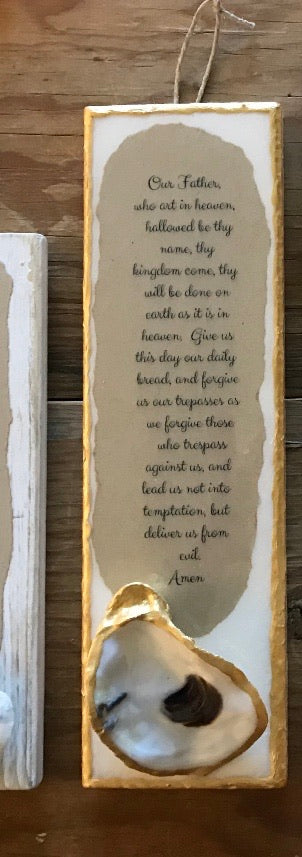 Our Father,
who art in heaven,
hallowed be thy
name, thy
kingdom come, thy
will be done on
earth as it is in
heaven. Give us
this day our daily
bread, and forgive
us our trepasses as
we forgive those
who trespass
against us, and
lead us not into
temptation, but
deliver us from
evil.
Amen